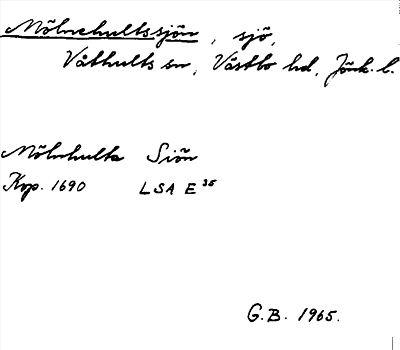 Mölnehultssjön, sjö,
Våthults sn, Västbo hd, Jönk. l.
Mölnhulta Siön
Kop. 1690 LSA E 35
G.B. 1965.